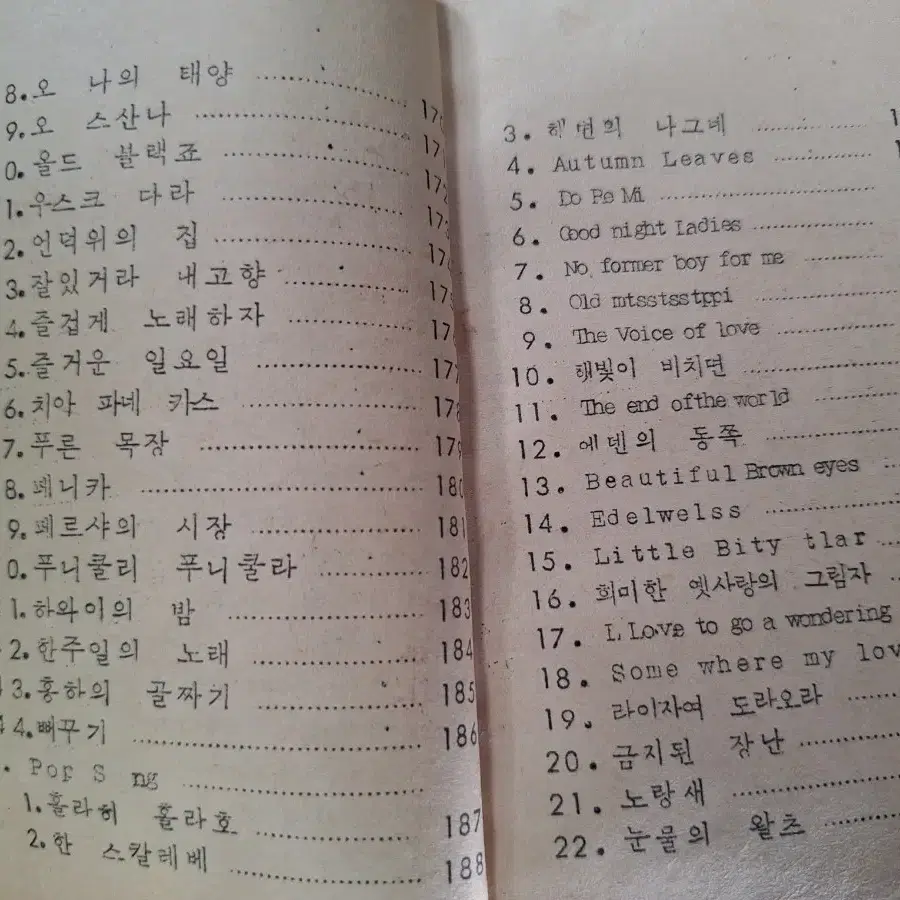 8.오 나의 태양 170
9.오 스산나 171
0.올드 블랙죠 172
1.우스크 다라 173
2.언덕위의 집 174
3.잘있거라 내고향 175
4.즐겁게 노래하자 176
5.즐거운 일요일 177
6.치야 파네 카스 178
7.푸른 목장 179
8.페니카 180
9.페르샤의 시장 181
0.푸니쿨리 푸니쿨라 182
1.하와이의 밤 183
2.한주일의 노래 184
3.홍하의 골짜기 185
4 4.뻐꾸기 186
. Pop S ng
1.훌라히 훌라호 187
2.한 스칼레베 188
3. 해변의 나그네
4. Autumn Leaves
5. Do Re Mi
6. Good night Ladies
7. No former boy for me
8. Old mtsstsstppi
9. The Voice of love
10. 햇빛이 비치면
11. The end ofthe world
12. 에덴의 동쪽
13. Beautiful Brown eyes
14. Edelwelss
15. Little Bity tlar
16. 희미한 옛사랑의 그림자
17. I Love to go a wondering
18. Some where my lov
19. 라이자여 도라오라
20. 금지된 장난
21. 노랑새
22. 눈물의 왈츠